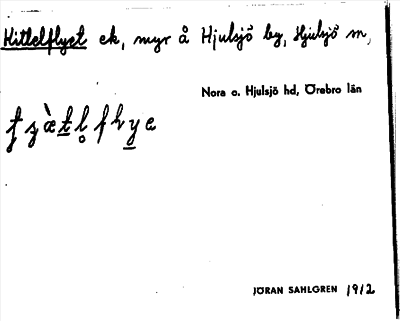 Kittelflyet ek, myr å Hjulsjö by, Hjulsjö m,
Nora o. Hjulsjö hd, Örebro län
JÖRAN SAHLGREN 1912